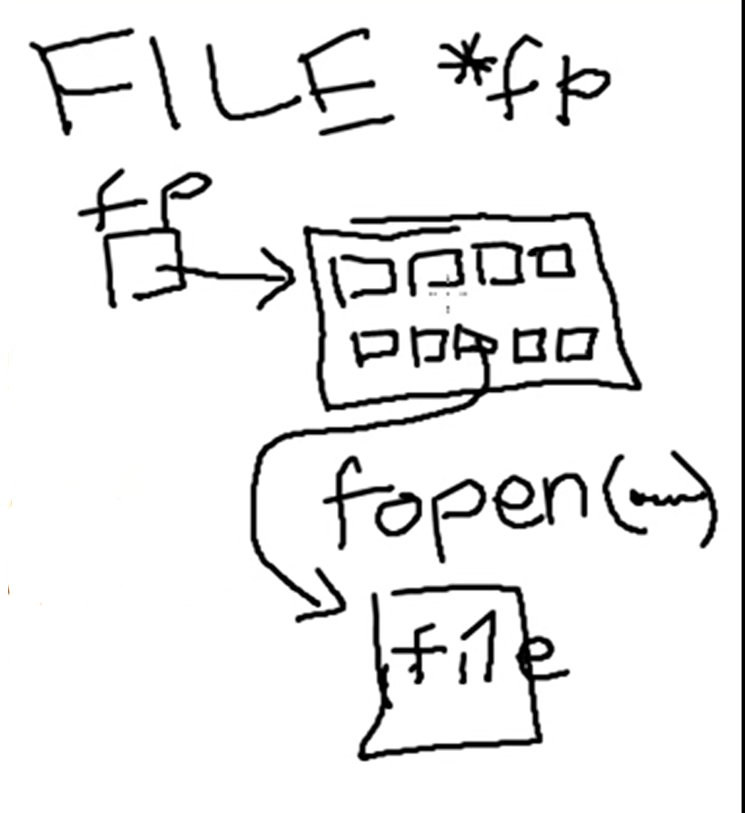 FILE *fp
fp
fopen(~~)
file